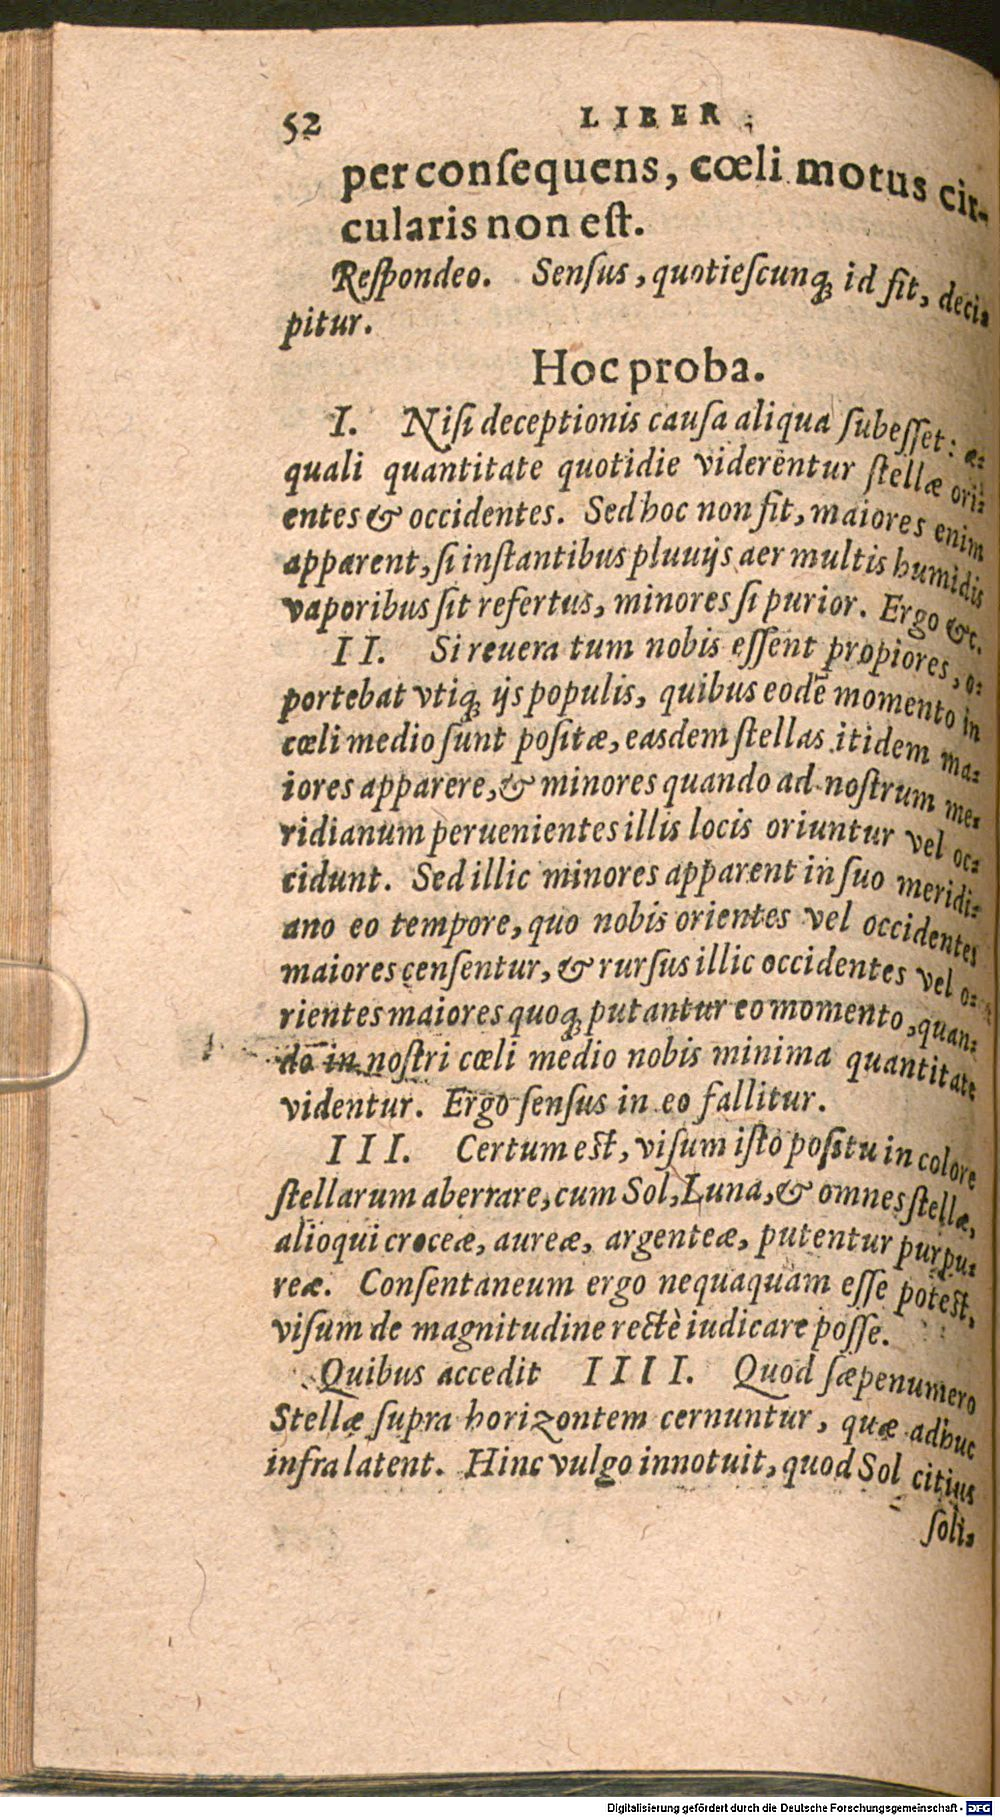 52 LIBER
per conſequens, cœli motus cir-
cularis non eſt.
Reſpondeo. Senſus, quotieſcunqꝫ id fit, deci-
pitur.
Hoc proba.
I. Niſi deceptionis cauſa aliqua ſubeſſet: æ-
quali quantitate quotidie viderentur ſtellæ ori-
entes & occidentes. Sed hoc non fit, maiores enim
apparent, ſi inſtantibus pluuijs aer multis humidis
vaporibus ſit refertus, minores ſi purior. Ergo &c.
II. Si reuera tum nobis eſſent propiores, o-
portebat vtiqꝫ ijs populis, quibus eodē momento in
cœli medio ſunt poſitæ, easdem ſtellas itidem ma-
iores apparere, & minores quando ad noſtrum me-
ridianum peruenientes illis locis oriuntur vel oc-
cidunt. Sed illic minores apparent in ſuo meridi-
ano eo tempore, quo nobis orientes vel occidentes
maiores cenſentur, & rurſus illic occidentes vel o-
rientes maiores quoqꝫ putantur eo momento, quan-
do in noſtri cœli medio nobis minima quantitate
videntur. Ergo ſenſus in eo fallitur.
III. Certum eſt, viſum iſto poſitu in colore
ſtellarum aberrare, cum Sol, Luna, & omnes ſtellæ,
alioqui croceæ, aureæ, argenteæ, putentur purpu-
reæ. Conſentaneum ergo nequaquam eſſe poteſt,
viſum de magnitudine rectè iudicare poſſe.
Quibus accedit IIII. Quod ſæpenumero
Stellæ ſupra horizontem cernuntur, quæ adhuc
infra latent. Hinc vulgo innotuit, quod Sol citius
ſoli-
Digitalisierung gefördert durch die Deutsche Forschungsgemeinschaft - DFG